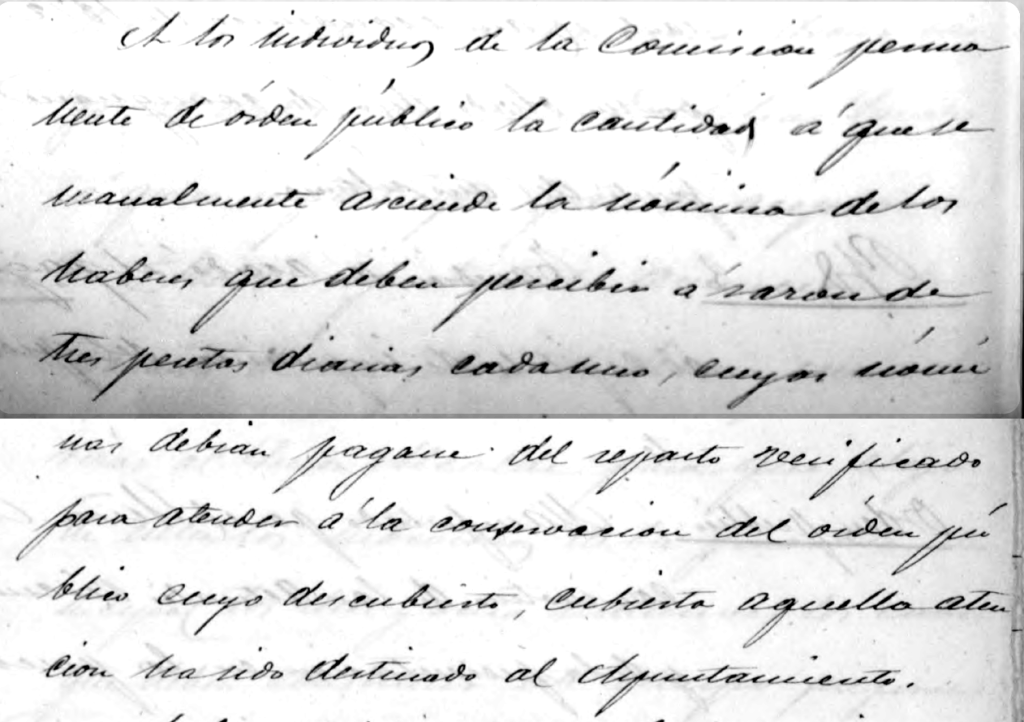 A los individuos de la Comision perma
nente de órden público la cantidad á que se
manalmente asciende la nómina de los
haberes que deben percibir á razon de
tres pesetas diarias cada uno, cuyas nómi
nas debian pagarse del reparto verificado
para atender á la conservacion del órden pú
blico cuyo descubierto, cubierta aquella aten
cion ha sido destinado al Ayuntamiento.